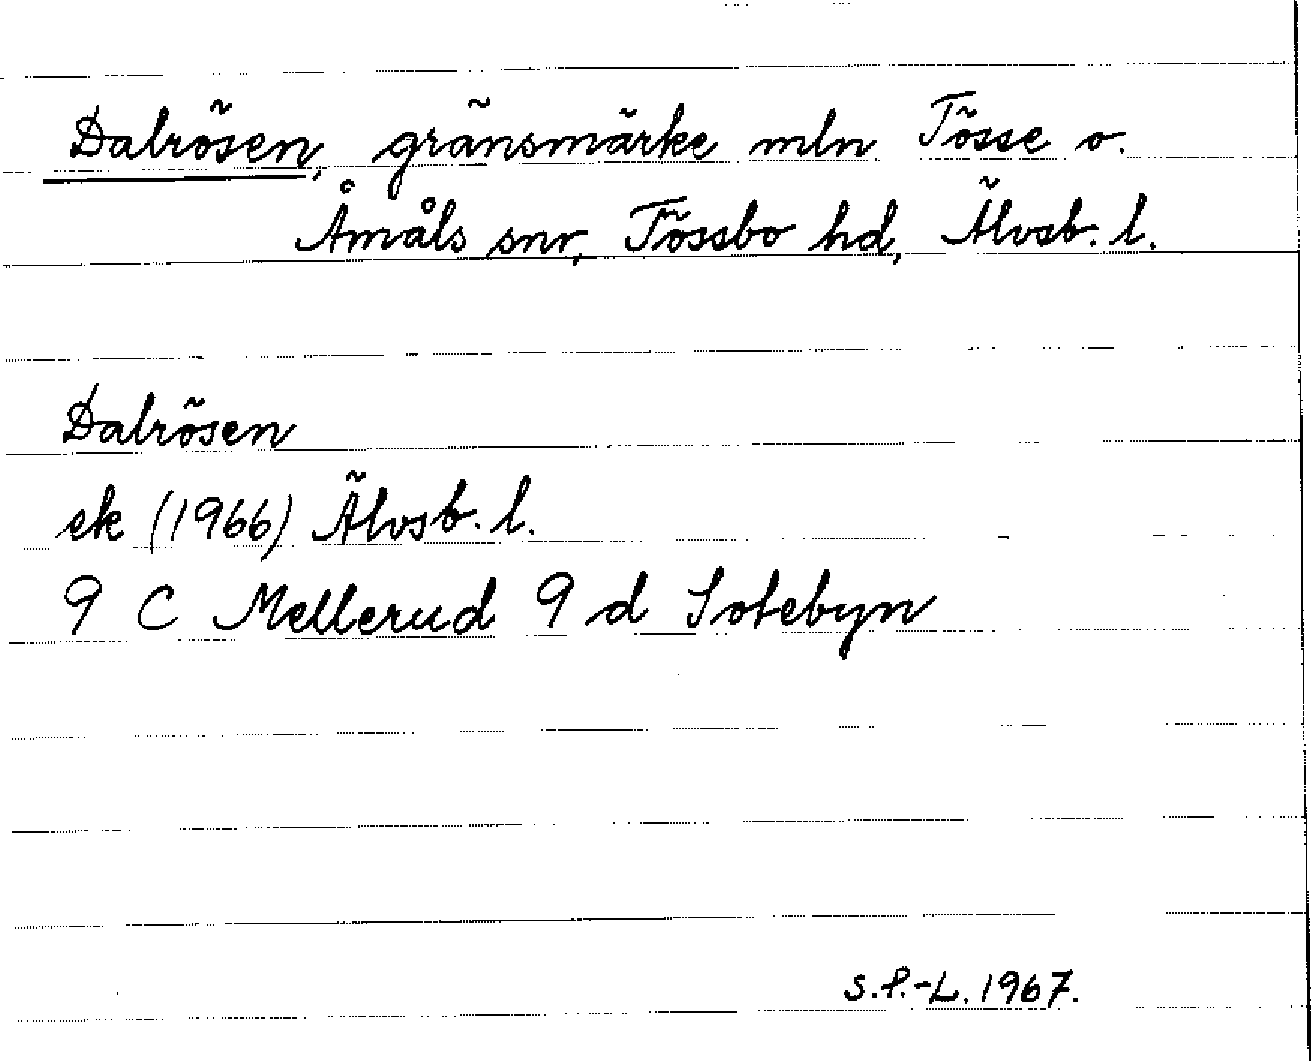 Dalrösen, gränsmärke mln Tösse o.
Åmåls snr, Tössbo hd, Älvsb. l.
Dalrösen
ek (1966) Älvsb. l.
9 C Mellerud 9 d Sotebyn
S.P.-L. 1967.